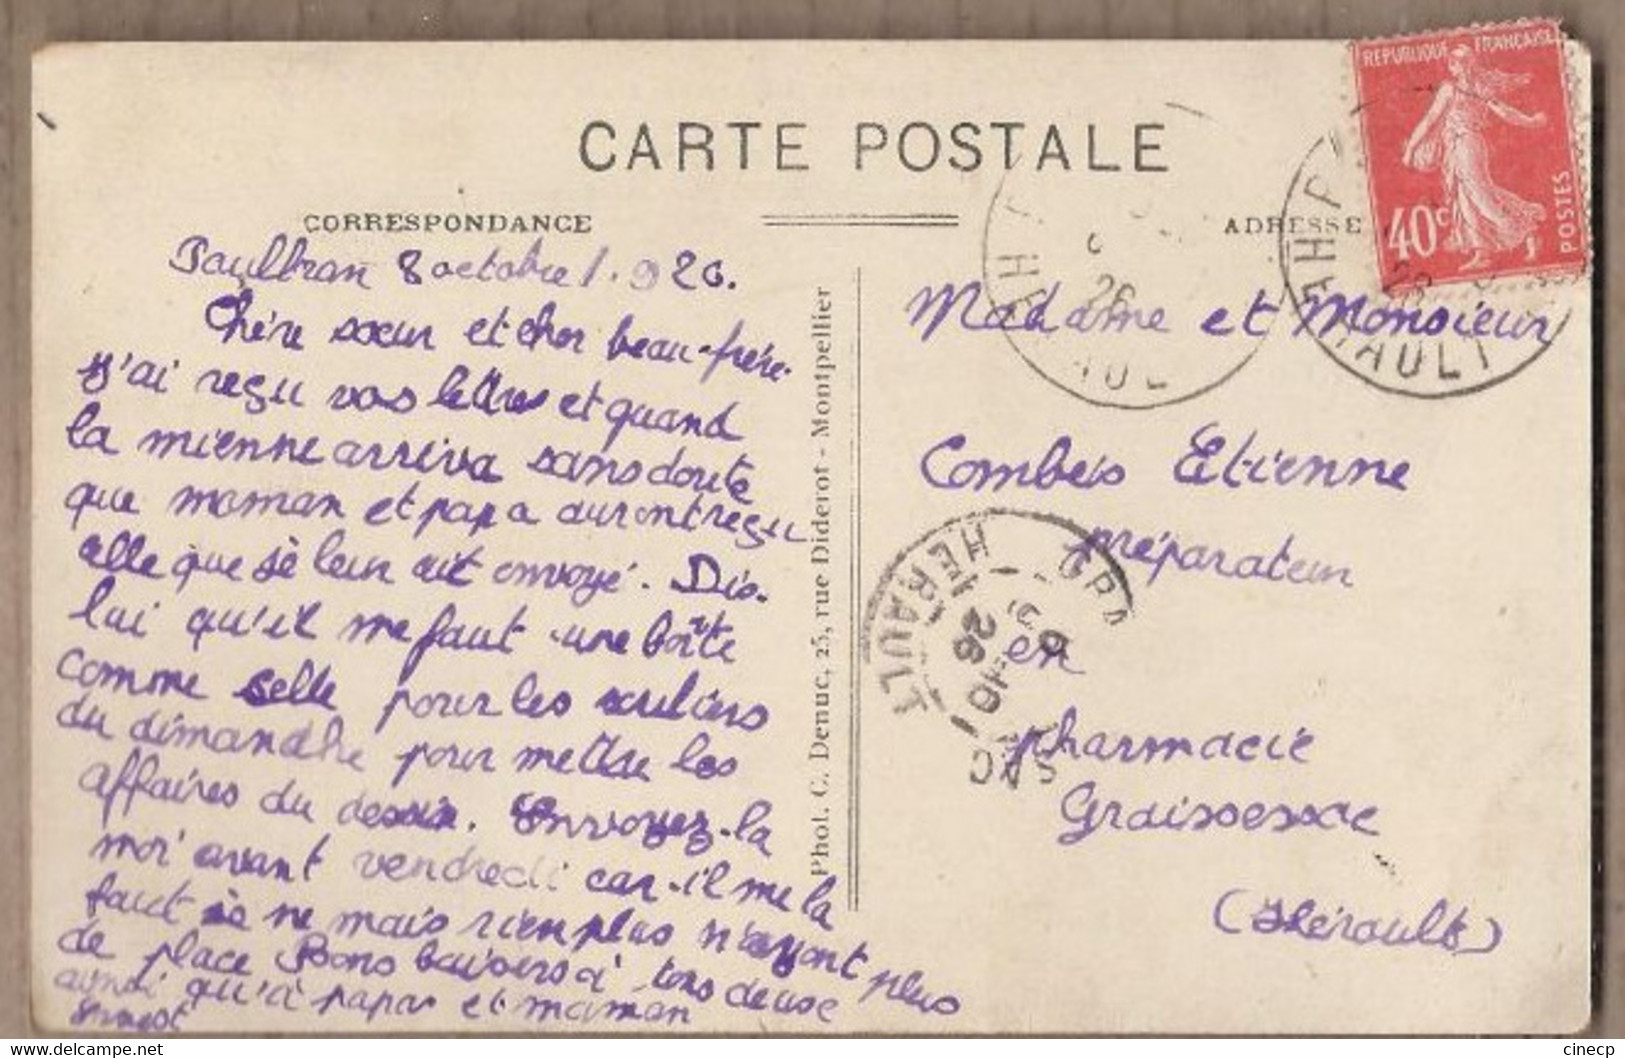 CARTE POSTALE
CORRESPONDANCE
ADRESSE
REPUBLIQUE FRANÇAISE
40c
POSTES
Paulhan 8 octobre 1.926.
Chère sœur et cher beau-frère
j'ai reçu vos lettres et quand
la mienne arriva sans doute
que maman et papa auront reçu
celle que je leur ait envoyé. Dis-
lui qu'il me faut une boîte
comme selle pour les souliers
du dimanche pour mettre les
affaires du dessin. Envoyez-la
moi avant vendredi car il me la
faut je ne mais rien plus n'ayant plus
de place Bons baisers à tous deuse
ainsi qu'à papa et maman
Ernest
Phot. C. Denuc, 25, rue Diderot - Montpellier
Madame et Monsieur
Combes Etienne
préparateur
en
pharmacie
Graissessac
(Hérault)
HERAULT
26
HERAULT
cinecp